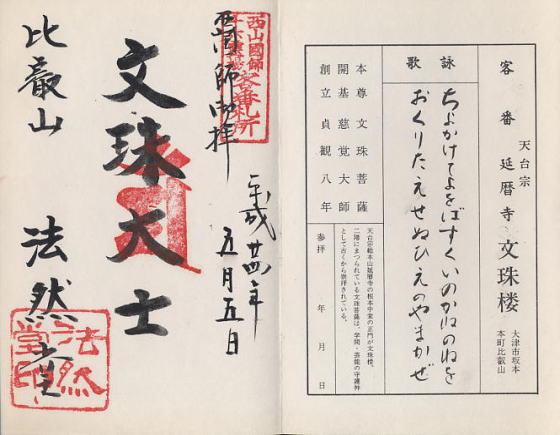 客番 天台宗 延暦寺 文珠楼
大津市坂本
本町比叡山
詠歌
ちよかけてよをばすくいのかねのねを
おくりたえせぬひえのやまかぜ
本尊 文珠菩薩
開基 慈覚大師
創立 貞観八年
天台宗総本山延暦寺の根本中堂の正門が文珠楼。
二階にまつられている文珠菩薩は、学問・芸能の守護神
として古くから崇拝されている。
参拝 年 月 日
西山國師
客番札所
平成廿四年
五月五日
文珠大士
比叡山 法然堂
法然
堂印